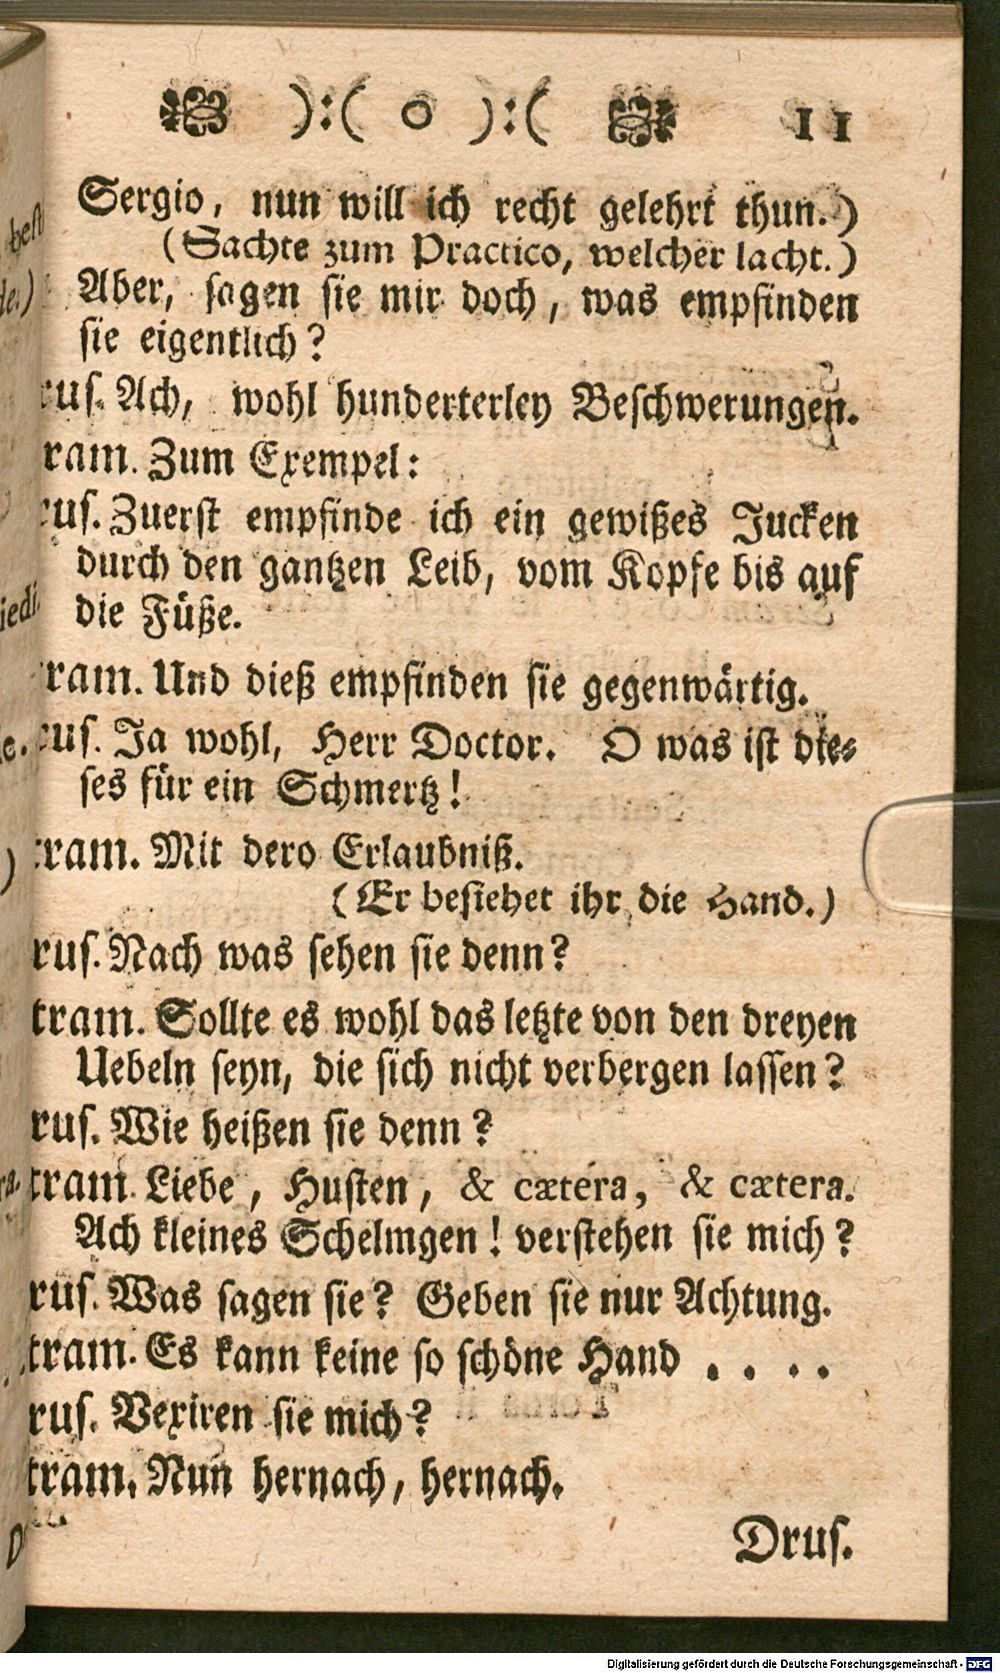 ):( o ):( 11
Sergio, nun will ich recht gelehrt thun.)
(Sachte zum Practico, welcher lacht.)
Aber, sagen sie mir doch, was empfinden
sie eigentlich?
rus. Ach, wohl hunderterley Beschwerungen.
ram. Zum Exempel:
rus. Zuerst empfinde ich ein gewißes Jucken
durch den gantzen Leib, vom Kopfe bis auf
die Füße.
ram. Und dieß empfinden sie gegenwärtig.
rus. Ja wohl, Herr Doctor. O was ist die-
ses für ein Schmertz!
ram. Mit dero Erlaubniß.
(Er besiehet ihr die Hand.)
rus. Nach was sehen sie denn?
tram. Sollte es wohl das letzte von den dreyen
Uebeln seyn, die sich nicht verbergen lassen?
rus. Wie heißen sie denn?
tram. Liebe, Husten, & cætera, & cætera.
Ach kleines Schelmgen! verstehen sie mich?
rus. Was sagen sie? Geben sie nur Achtung.
tram. Es kann keine so schöne Hand . . . .
rus. Vexiren sie mich?
tram. Nun hernach, hernach.
Drus.
Digitalisierung gefördert durch die Deutsche Forschungsgemeinschaft - DFG